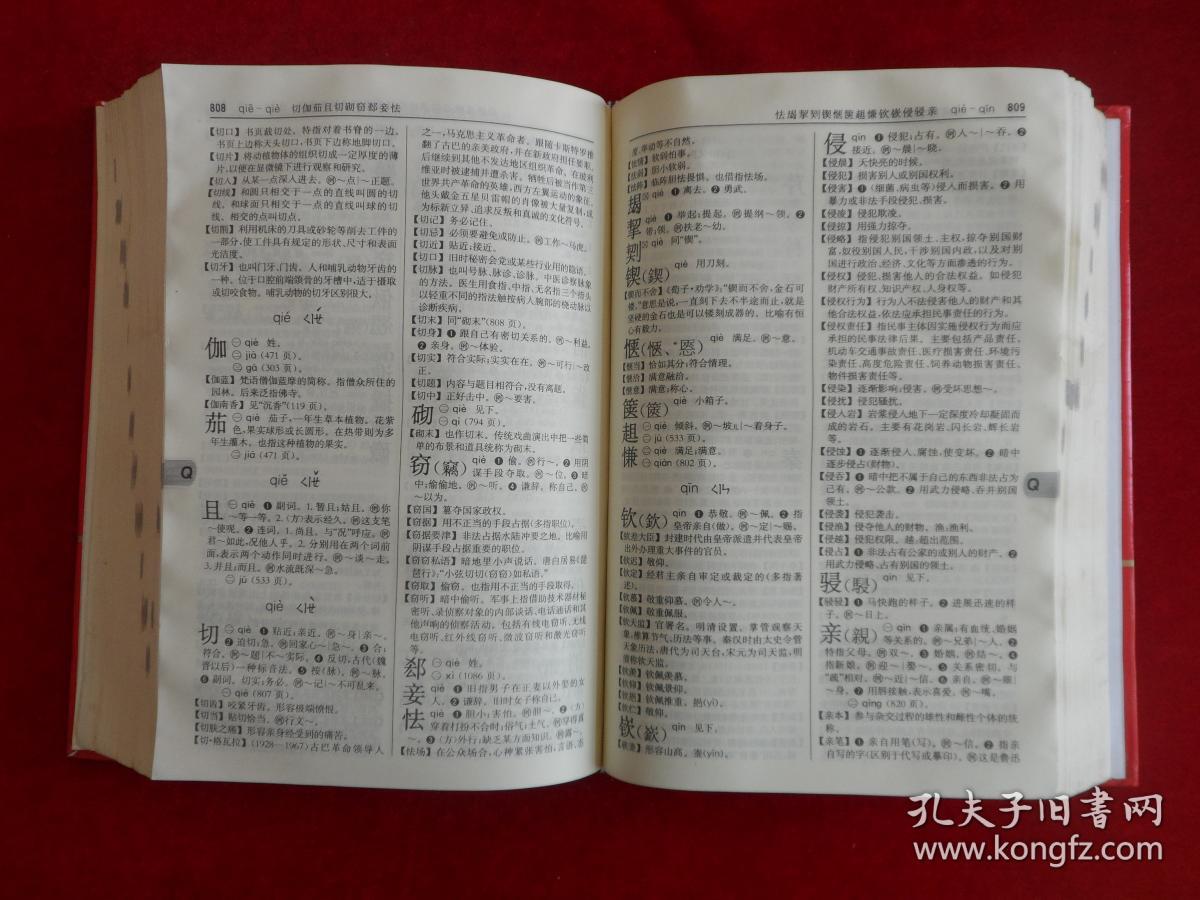 808 qiē-qiè 切伽茄且切砌窃郄妾怯
【切口】书页裁切处。特指对着书脊的一边。
书页上边称天头切口,书页下边称地脚切口。
【切片】将动植物体的组织切成一定厚度的薄
片,以便在显微镜下进行观察和研究。
【切入】从某一点深入进去。例~点|~正题。
【切线】和圆只相交于一点的直线叫圆的切
线。和球面只相交于一点的直线叫球的切
线。相交的点叫切点。
【切削】利用机床的刀具或砂轮等削去工件的
一部分,使工件具有规定的形状、尺寸和表面
光洁度。
【切牙】也叫门牙、门齿。人和哺乳动物牙齿的
一种。位于口腔前端颌骨的牙槽中,适于撮取
或切咬食物。哺乳动物的切牙区别很大。
qié ㄑㄧㄝˊ
伽 ㊀ qié 姓。
㊁ jiā (471 页)。
㊂ gā (303 页)。
【伽蓝】梵语僧伽蓝摩的简称。指僧众所住的
园林。后来泛指佛寺。
【伽南香】见“沉香”(119 页)。
茄 ㊀ qié 茄子,一年生草本植物。花紫
色,果实球形或长圆形。在热带则为多
年生灌木。也指这种植物的果实。
㊁ jiā (471 页)。
qiě ㄑㄧㄝˇ
且 ㊀ qiě ❶ 副词。1. 暂且;姑且。例你
~等一等。2.(方)表示经久。例这支笔
~使呢。❷ 连词。1. 尚且。与“况”呼应。例
君~如此,况他人乎。2. 分别用在两个词前
面,表示两个动作同时进行。例~谈~走。
3. 并且;而且。例水流既深~急。
㊁ jū (533 页)。
qiè ㄑㄧㄝˋ
切 ㊀ qiè ❶ 贴近;亲近。例~身|亲~。
❷ 迫切;急。例回家心~|急~。❸ 合;
符合。例~题|不~实际。❹ 反切,古代(魏
晋以后)一种标音法。❺ 按(脉)。例~脉。
❻ 副词。切实;务必。例~记|~不可乱来。
㊁ qiē (807 页)。
【切齿】咬紧牙齿,形容极端愤恨。
【切当】贴切恰当。例行文~。
【切肤之痛】形容亲身经受到的痛苦。
【切·格瓦拉】(1928—1967)古巴革命领导人
之一,马克思主义革命者。跟随卡斯特罗推
翻了古巴的亲美政府,并在新政府担任要职。
后继续到其他不发达地区组织革命。在玻利
维亚时被逮捕并遭杀害。牺牲后被当作第三
世界共产革命的英雄,西方左翼运动的象征。
他头戴金五星贝雷帽的肖像被大量复制,成
为标新立异、追求反叛和真诚的文化符号。
【切记】务必记住。
【切忌】必须要避免或防止。例工作~马虎。
【切近】贴近;接近。
【切口】旧时秘密会党或某些行业用的隐语。
【切脉】也叫号脉、脉诊、诊脉。中医诊察脉象
的方法。医生用食指、中指、无名指三个指头
以轻重不同的指法触按病人腕部的桡动脉以
诊断疾病。
【切末】同“砌末”(808 页)。
【切身】❶ 跟自己有密切关系的。例~利益。
❷ 亲身。例~体验。
【切实】符合实际;实实在在。例~可行|~改
正。
【切题】内容与题目相符合,没有离题。
【切中】正好击中。例~要害。
砌 ㊀ qiè 见下。
㊁ qì (794 页)。
【砌末】也作切末。传统戏曲演出中把一些简
单的布景和道具统称为砌末。
窃(竊) qiè ❶ 偷。例行~。❷ 用阴
谋手段夺取。例~位。❸ 暗
中;偷偷地。例~听。❹ 谦辞。称自己。例
~以为。
【窃国】篡夺国家政权。
【窃据】用不正当的手段占据(多指职位)。
【窃据要津】非法占据水陆冲要之地。比喻用
阴谋手段占据重要的职位。
【窃窃私语】暗地里小声说话。唐白居易《琵
琶行》:“小弦切切(窃窃)如私语。”
【窃取】偷窃。也指用不正当的手段取得。
【窃听】暗中偷听。军事上指借助技术器材秘
密听、录侦察对象的内部谈话、电话通话和其
他声响的侦察活动。包括有线电窃听、无线
电窃听、红外线窃听、微波窃听和激光窃听
等。
郄 ㊀ qiè 姓。
㊁ xì (1086 页)。
妾 qiè ❶ 旧指男子在正妻以外娶的女
人。❷ 谦辞。旧时女子称自己。
怯 qiè ❶ 胆小;害怕。例胆~。❷ (方)
穿着打扮不合时;俗气;土气。例穿得真
~。❸ (方)外行;缺乏某方面知识。例露~。
【怯场】在公众场合,心神紧张害怕,言语、态
Q
怯朅挈㓶锲惬箧趄慊钦嵚侵骎亲 qiè-qīn 809
度、举动等不自然。
【怯懦】软弱怕事。
【怯弱】胆小软弱。
【怯阵】临阵胆怯畏惧。也借指怯场。
朅 qiè ❶ 离去。❷ 勇武。
挈 qiè ❶ 举起;提起。例提纲~领。❷
带;领。例扶老~幼。
qiè 同“锲”。
锲(鍥) qiè 用刀刻。
【锲而不舍】《荀子·劝学》:“锲而不舍,金石可
镂。”意思是说,一直刻下去不半途而止,就是
坚硬的金石也是可以镂刻成器的。比喻有恒
心有毅力。
惬(愜、*慝) qiè 满足。例~意。
【惬当】恰如其分;符合情理。
【惬洽】满意融洽。
【惬意】满意;称心。
箧(篋) qiè 小箱子。
趄 ㊀ qiè 倾斜。例~坡儿|~着身子。
㊁ jū (533 页)。
慊 ㊀ qiè 满足;满意。
㊁ qiàn (802 页)。
qīn ㄑㄧㄣ
钦(欽) qīn ❶ 恭敬。例~佩。❷ 指
皇帝亲自(做)。例~定|~赐。
【钦差大臣】封建时代由皇帝派遣并代表皇帝
出外办理重大事件的官员。
【钦迟】敬仰。
【钦定】经君主亲自审定或裁定的(多指著
述)。
【钦慕】敬重仰慕。例令人~。
【钦佩】敬重佩服。
【钦天监】官署名。明清设置。掌管观察天
象,推算节气、历法等事。秦汉时由太史令管
天象历法;唐代为司天台;宋元为司天监,明
清称钦天监。
【钦羡】钦佩羡慕。
【钦仰】钦佩景仰。
【钦挹】钦佩推重。挹(yì)。
【钦伫】敬仰。
嵚(嶔) qīn 见下。
【嵚崟】形容山高。崟(yín)。
侵 qīn ❶ 侵犯;占有。例入~|~吞。❷
接近。例~晨|~晓。
【侵晨】天快亮的时候。
【侵犯】损害别人或别国权利。
【侵害】❶ (细菌、病虫等)侵入而损害。❷ 用
暴力或非法手段侵犯、损害。
【侵凌】侵犯欺凌。
【侵掠】用强力掠夺。
【侵略】指侵犯别国领土、主权,掠夺别国财
富,奴役别国人民,干涉别国内政,以及对别
国进行政治、经济、文化等方面渗透的行为。
【侵权】侵犯、损害他人的合法权益。如侵犯
财产所有权、知识产权、人身权等。
【侵权行为】行为人不法侵害他人的财产和其
他合法权益,依法应承担民事责任的行为。
【侵权责任】指民事主体因实施侵权行为而应
承担的民事法律后果。主要包括产品责任、
机动车交通事故责任、医疗损害责任、环境污
染责任、高度危险责任、饲养动物损害责任、
物件损害责任等。
【侵染】逐渐影响;侵害。例受坏思想~。
【侵扰】侵犯骚扰。
【侵入岩】岩浆侵入地下一定深度冷却凝固而
成的岩石。主要有花岗岩、闪长岩、辉长岩
等。
【侵蚀】❶ 逐渐侵入、腐蚀,使变坏。❷ 暗中
逐步侵占(财物)。
【侵吞】❶ 暗中把不属于自己的东西非法占为
己有。例~公款。❷ 用武力侵略、吞并别国
领土。
【侵袭】侵犯袭击。
【侵渔】侵夺他人的财物。渔:渔利。
【侵越】侵犯权限。越:超出范围。
【侵占】❶ 非法占有公家的或别人的财产。❷
用武力侵略、占有别国的领土。
骎(駸) qīn 见下。
【骎骎】❶ 马快跑的样子。❷ 进展迅速的样
子。例~日上。
亲(親) ㊀ qīn ❶ 亲属;有血统、婚姻
等关系的。例~兄弟|~人。❷
特指父母。例双~。❸ 婚姻。例结~。❹
指新娘。例迎~|娶~。❺ 关系密切。与
“疏”相对。例~近|~信。❻ 亲自。例~眼|
~身。❼ 用唇接触,表示喜爱。例~嘴。
㊁ qìng (820 页)。
【亲本】参与杂交过程的雄性和雌性个体的统
称。
【亲笔】❶ 亲自用笔(写)。例~信。❷ 指亲
自写的字(区别于代写或摹印)。例这是鲁迅
Q
孔夫子旧书网
www.kongfz.com